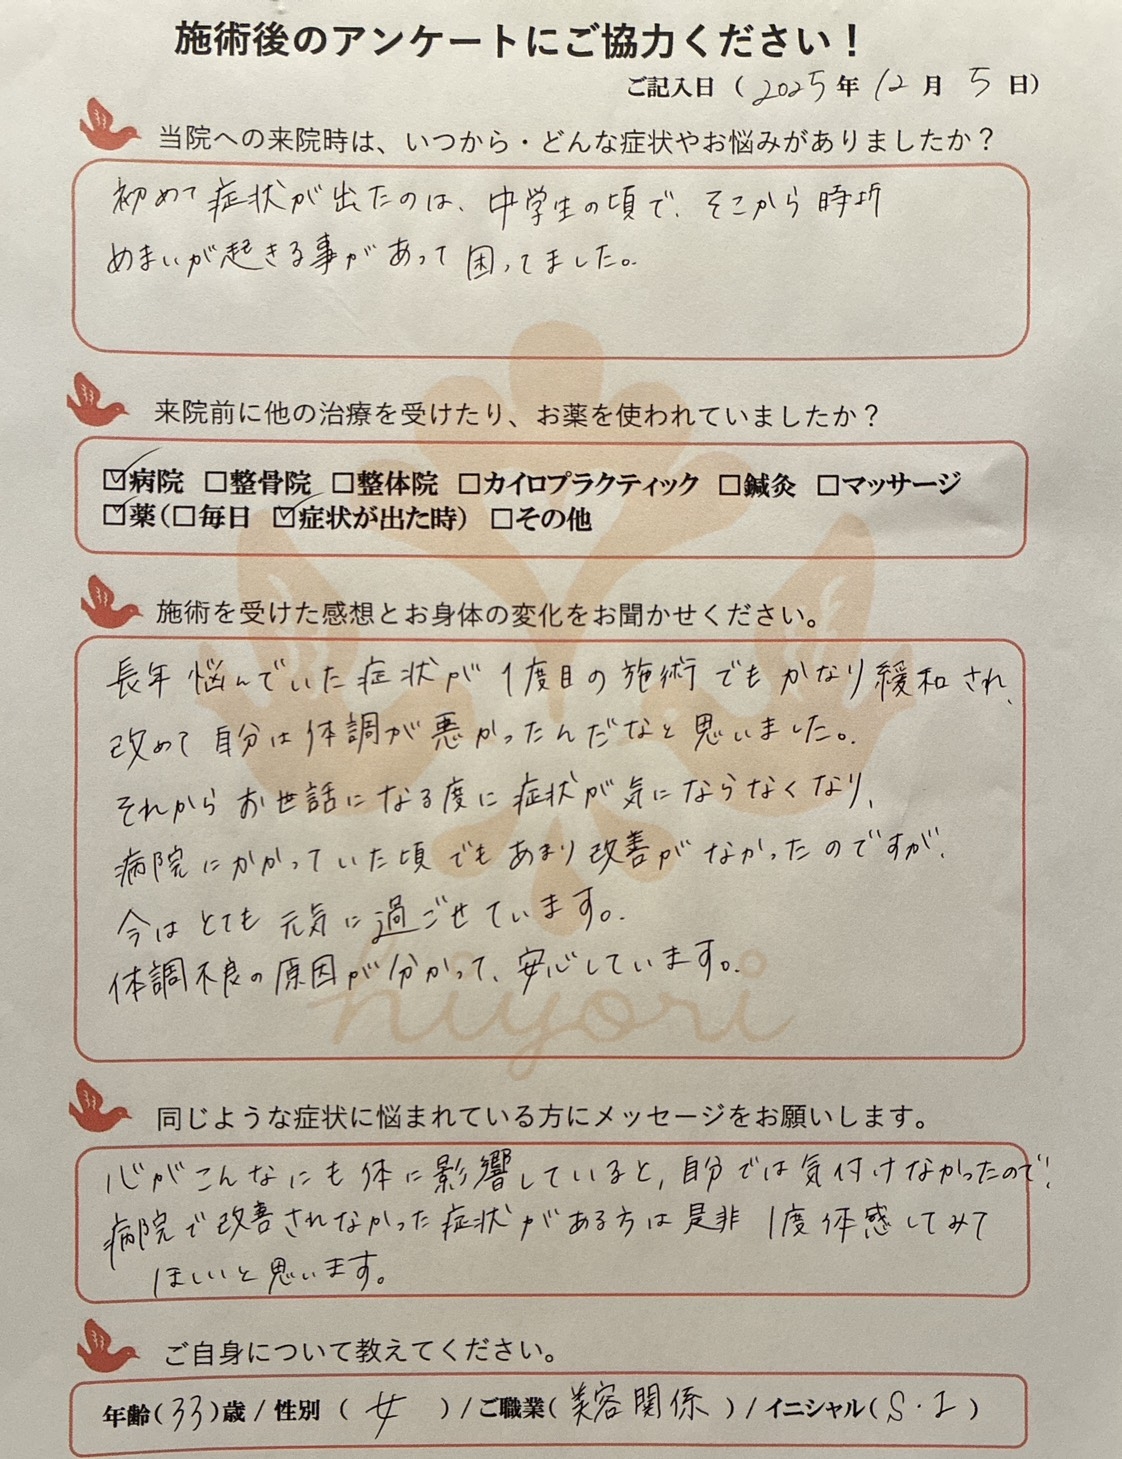 施術後のアンケートにご協力ください！
ご記入日（2025年12月5日）
当院への来院時は、いつから・どんな症状やお悩みがありましたか？
初めて症状が出たのは、中学生の頃で、そこから時折
めまいが起きる事があって困ってました。
来院前に他の治療を受けたり、お薬を使われていましたか？
☑病院 □整骨院 □整体院 □カイロプラクティック □鍼灸 □マッサージ
☑薬（□毎日 ☑症状が出た時） □その他
施術を受けた感想とお身体の変化をお聞かせください。
長年悩んでいた症状が1度目の施術でもかなり緩和され、
改めて自分は体調が悪かったんだなと思いました。
それからお世話になる度に症状が気にならなくなり、
病院にかかっていた頃でもあまり改善がなかったのですが、
今はとても元気に過ごせています。
体調不良の原因が分かって、安心しています。
hiyori
同じような症状に悩まれている方にメッセージをお願いします。
心がこんなにも体に影響していると、自分では気付けなかったので！
病院で改善されなかった症状がある方は是非1度体感してみて
ほしいと思います。
ご自身について教えてください。
年齢（33）歳 / 性別（女）/ ご職業（美容関係）/ イニシャル（S・I）